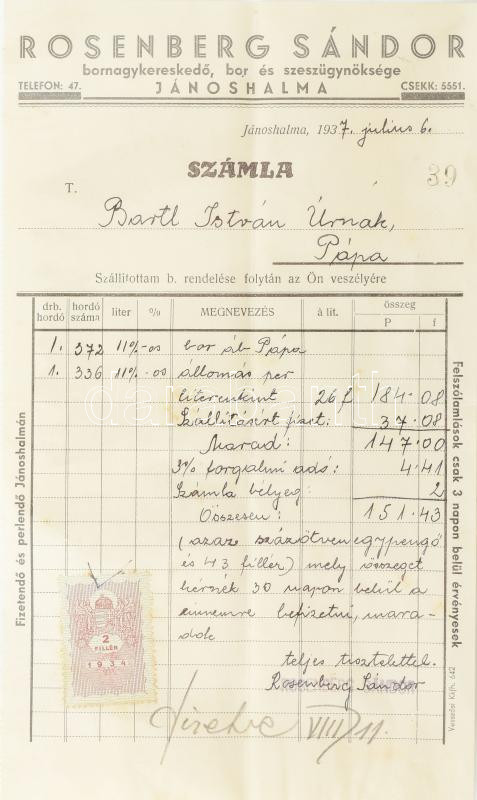 ROSENBERG SÁNDOR
bornagykereskedő, bor és szeszügynöksége
TELEFON: 47. JÁNOSHALMA CSEKK: 5551.
Jánoshalma, 1937. július 6.
SZÁMLA 39
T.
Bartl István Úrnak,
Pápa
Szállítottam b. rendelése folytán az Ön veszélyére
drb. hordó hordó száma liter % MEGNEVEZÉS á lit. összeg P f
1. 372 bor áb Pápa
1. 336 állomás per
literenkint 26 f 184.08
Szállításért fizet: 37.08
Marad: 147.00
3% forgalmi adó: 4.41
Számla bélyeg: 2
Összesen: 151.43
(azaz százötvenegypengő
és 43 fillér) mely összeget
kérnék 30 napon belül a
címemre befizetni, mara-
dok
teljes tisztelettel.
Rosenberg Sándor
Fizetve VIII/11.
Fizetendő és perlendő Jánoshalmán
Felszólamlások csak 3 napon belül érvényesek
2
FILLÉR
1934